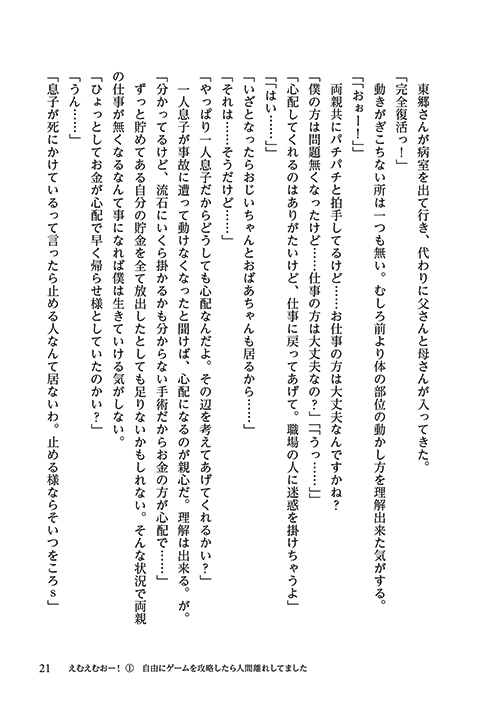 東郷さんが病室を出て行き、代わりに父さんと母さんが入ってきた。
「完全復活っ！」
動きがぎこちない所は一つも無い。むしろ前より体の部位の動かし方を理解出来た気がする。
「「おぉー！」」
両親共にパチパチと拍手してるけど……お仕事の方は大丈夫なんですかね？
「僕の方は問題無くなったけど……仕事の方は大丈夫なの？」「「うっ……」」
「心配してくれるのはありがたいけど、仕事に戻ってあげて。職場の人に迷惑を掛けちゃうよ」
「「はい……」」
「いざとなったらおじいちゃんとおばあちゃんも居るから……」
「それは……そうだけど……」
「やっぱり一人息子だからどうしても心配なんだよ。その辺を考えてあげてくれるかい？」
一人息子が事故に遭って動けなくなったと聞けば、心配になるのが親心だ。理解は出来る。が。
「分かってるけど、流石にいくら掛かるかも分からない手術だからお金の方が心配で……」
ずっと貯めてある自分の貯金を全て放出したとしても足りないかもしれない。そんな状況で両親
の仕事が無くなるなんて事になれば僕は生きていける気がしない。
「ひょっとしてお金が心配で早く帰らせ様としていたのかい？」
「うん……」
「息子が死にかけているって言ったら止める人なんて居ないわ。止める様ならそいつをころs」
21　えむえむおー！ ① 自由にゲームを攻略したら人間離れしてました